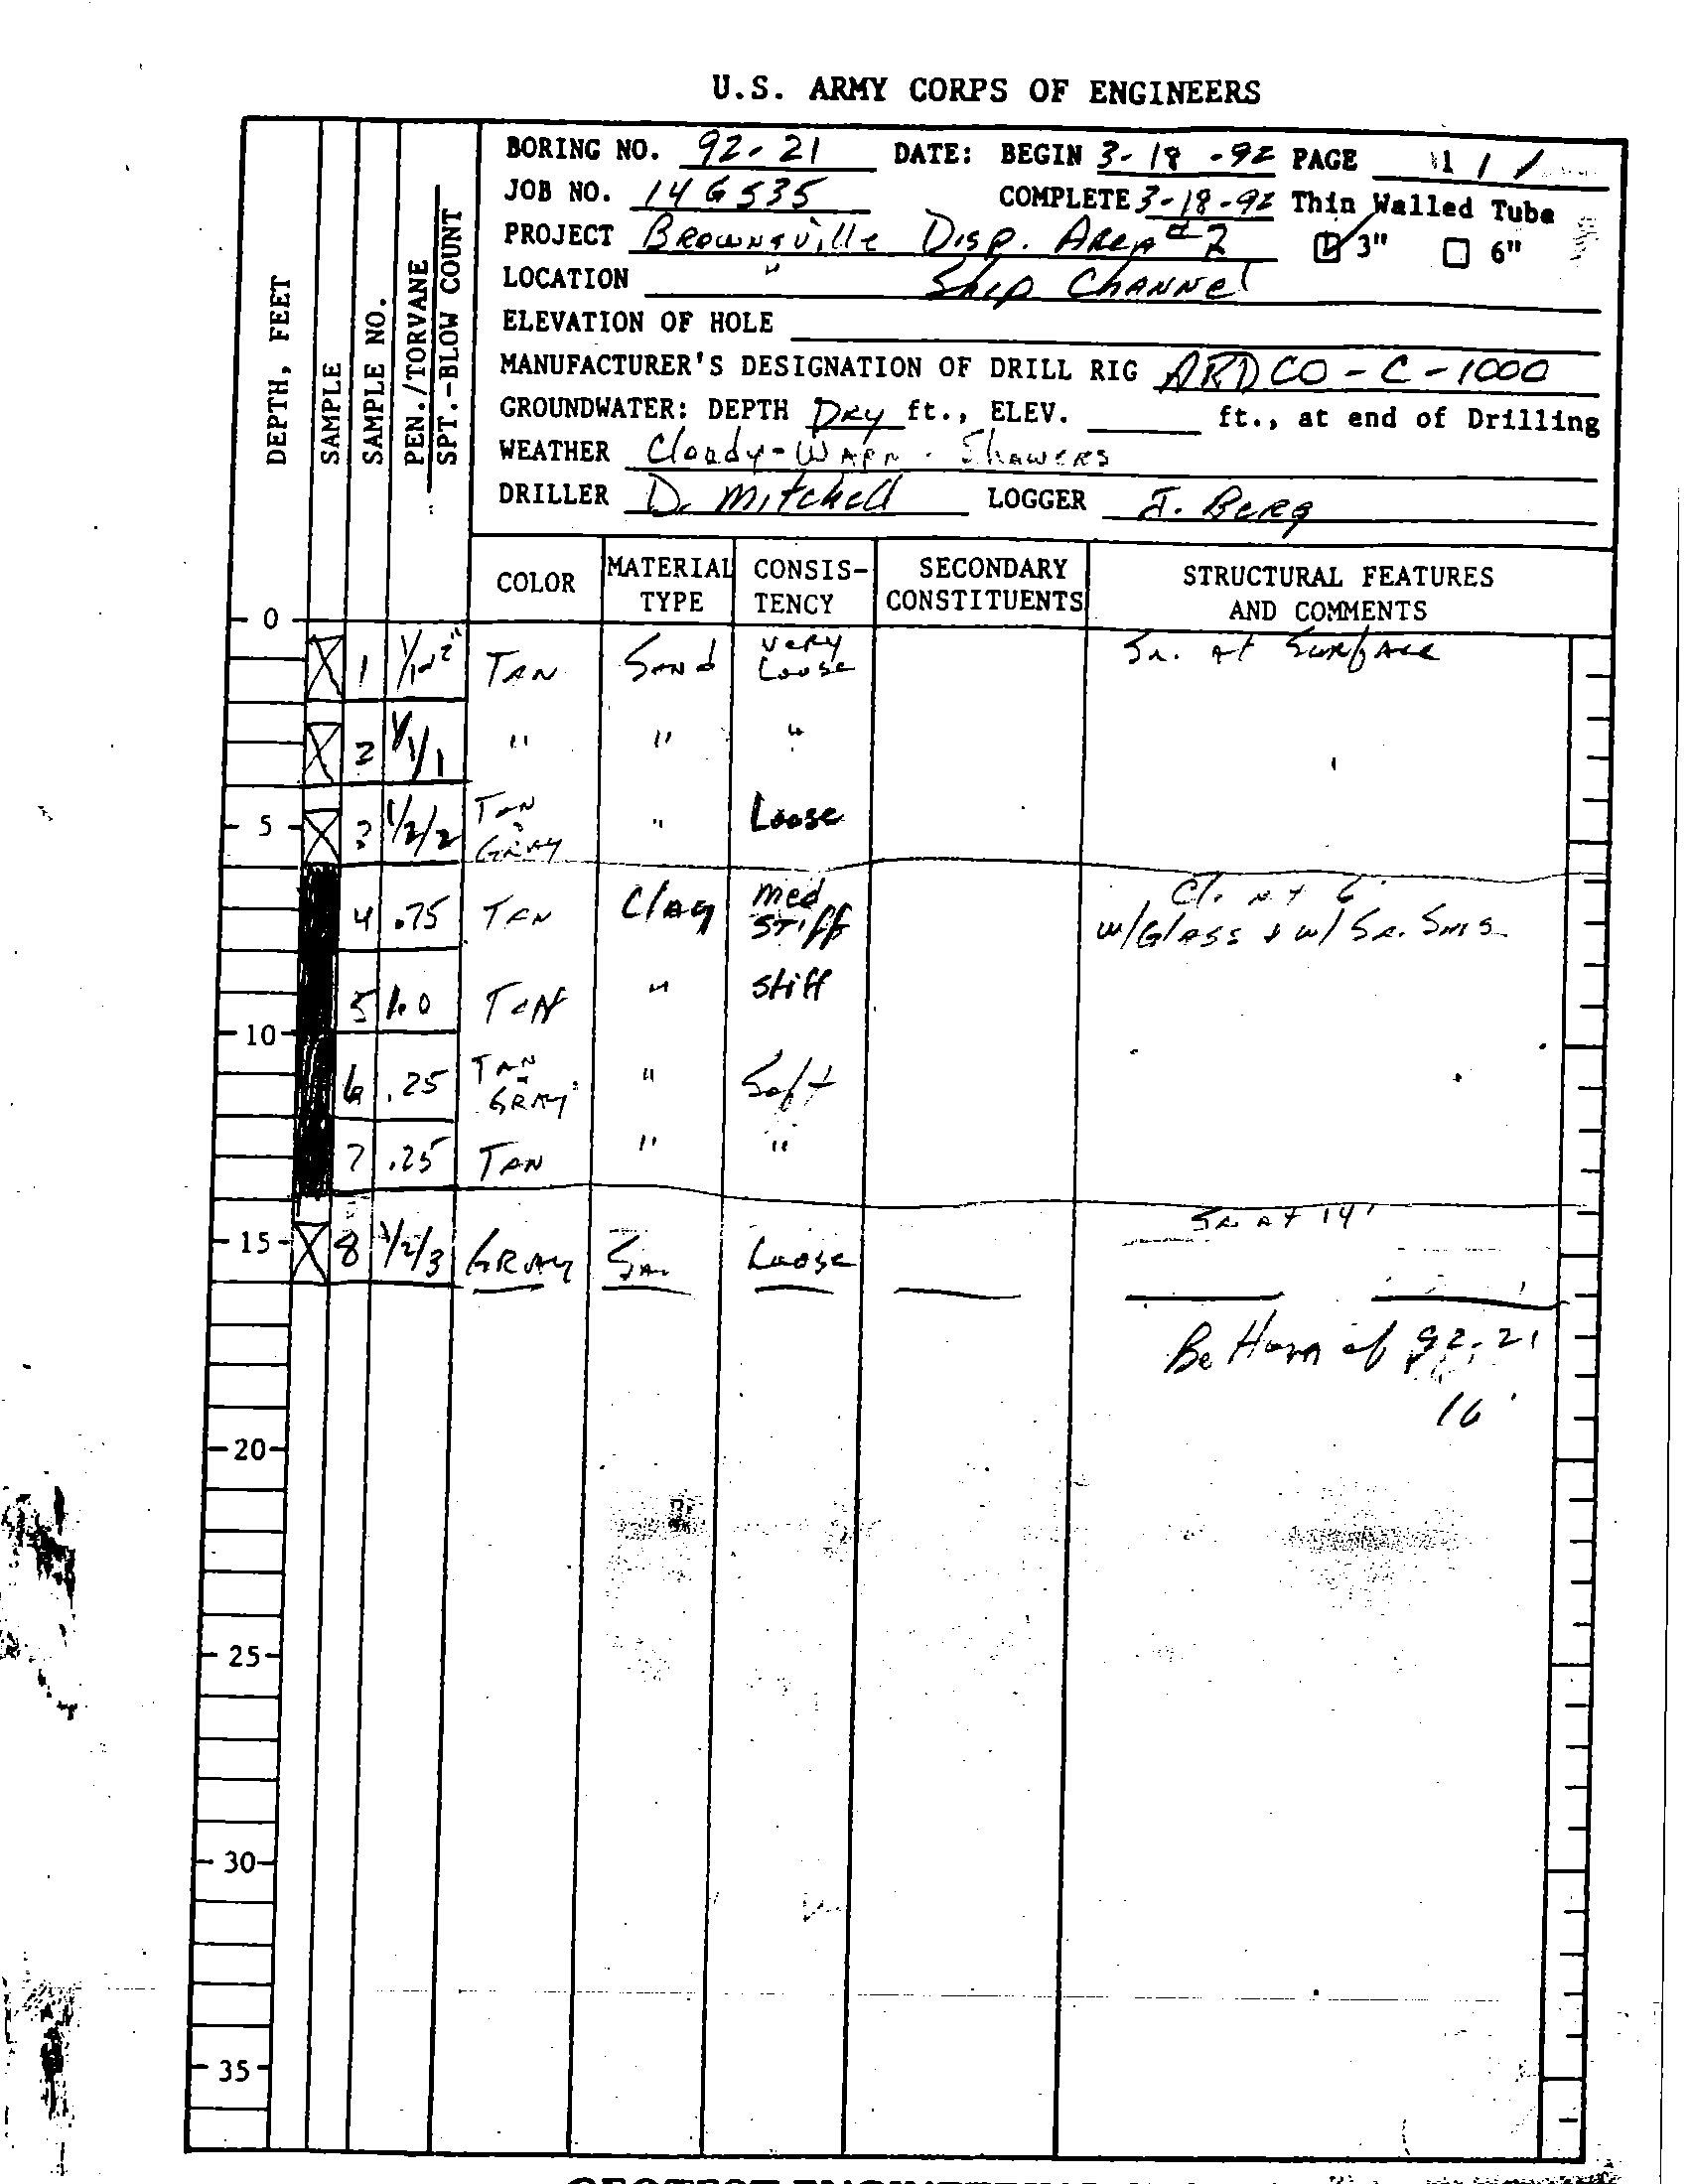 U.S. ARMY CORPS OF ENGINEERS
BORING NO. 92-21 DATE: BEGIN 3-18-92 PAGE 1 / 1
JOB NO. 14G535 COMPLETE 3-18-92 Thin Walled Tube
PROJECT Brownsville Disp. Area #2 3" 6"
LOCATION " Ship Channel
ELEVATION OF HOLE
MANUFACTURER'S DESIGNATION OF DRILL RIG ARDCO-C-1000
GROUNDWATER: DEPTH Dry ft., ELEV. ft., at end of Drilling
WEATHER Cloudy-Warm. Shawers
DRILLER D. Mitchell LOGGER J. Berg
DEPTH, FEET
SAMPLE
SAMPLE NO.
PEN./TORVANE
SPT.-BLOW COUNT
COLOR MATERIAL TYPE CONSIS-TENCY SECONDARY CONSTITUENTS STRUCTURAL FEATURES AND COMMENTS
0
1 Tan Sand very Loose Sa. At Surface
2 1/1/1 " " "
5 3 1/2/2 Tan Gray " Loose
4 .75 Tan Clay med stiff Cl. At 6'
w/Glass & w/ Sa. Sms
5 1.0 Tan " stiff
10
6 .25 Tan Gray " Soft
7 .25 Tan " "
Sa At 14'
15 8 1/2/3 Gray Sa. Loose
Bottom of 92-21
16'
20
25
30
35